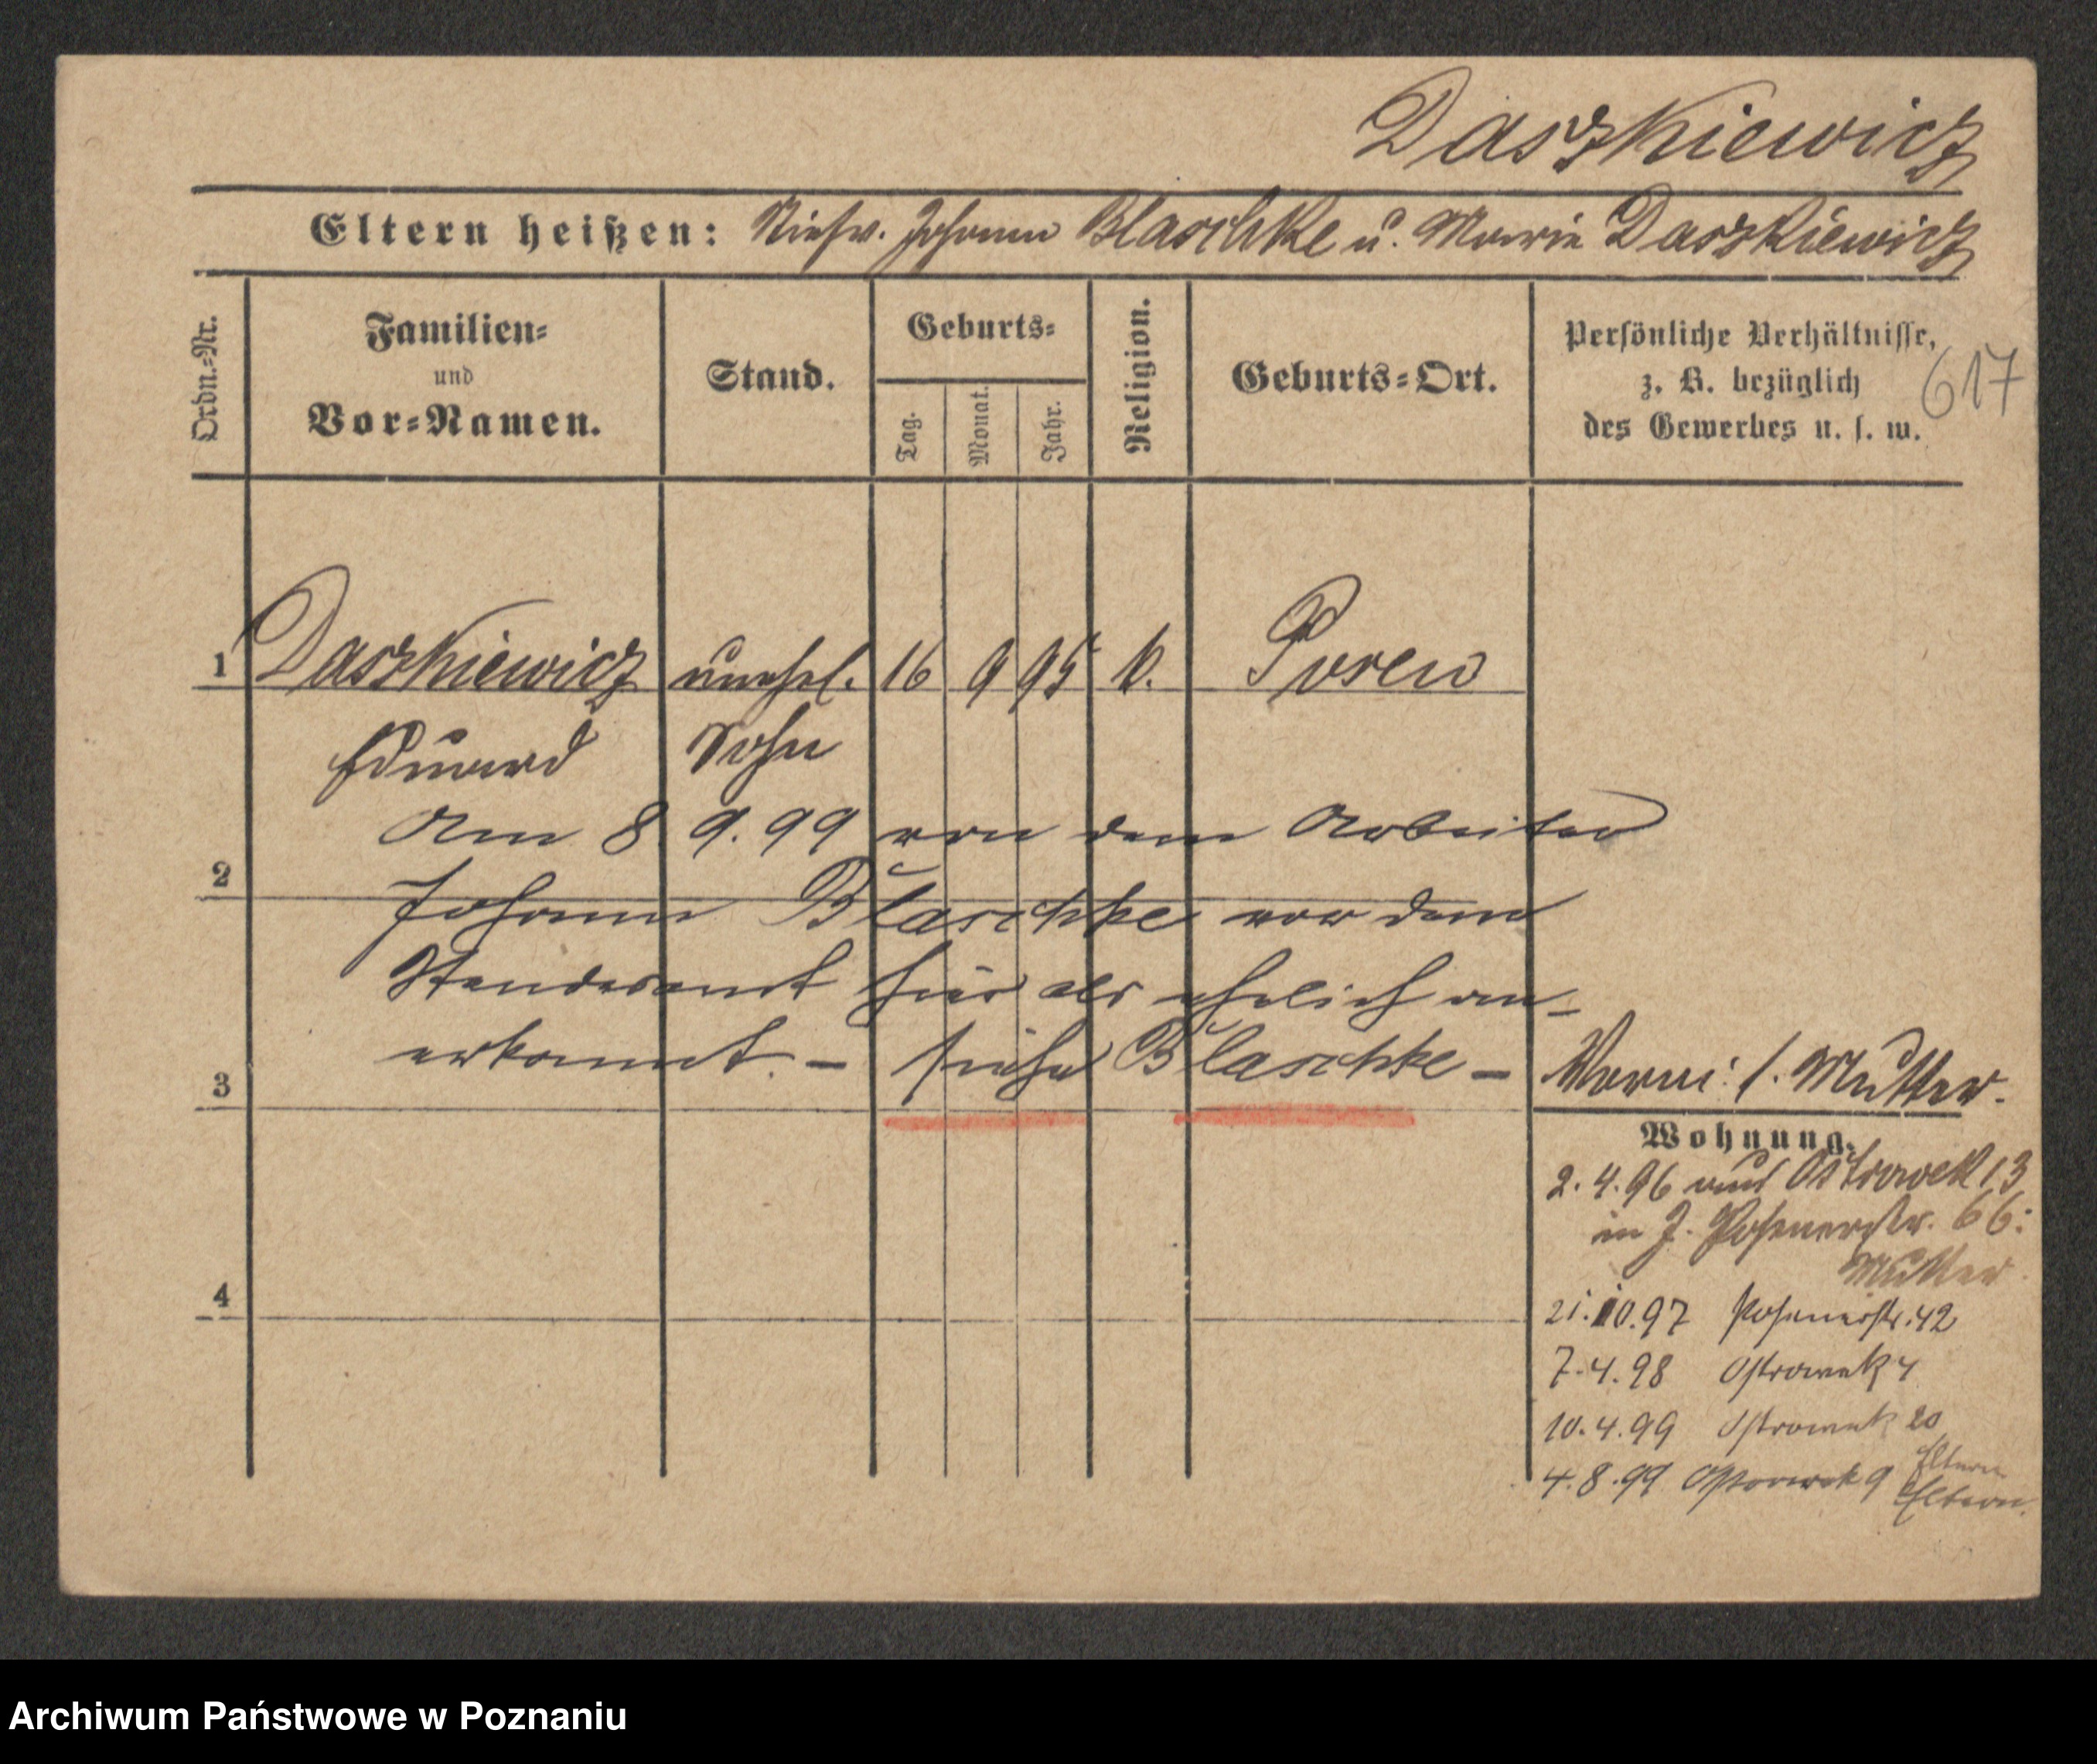 Daszkiewicz
Eltern heißen: Johann Blaschke u. Marie Daszkiewicz
Ordn.=Nr.
Familien=
und
Vor=Namen.
Stand.
Geburts=
Tag.
Monat.
Jahr.
Religion.
Geburts=Ort.
Persönliche Verhältnisse,
z. B. bezüglich
des Gewerbes u. s. w.
617
1 Daszkiewicz unehel. 16 9 95 k. Posen
Eduard Sohn
Am 8. 9. 99 von dem Arbeiter
2
Johann Blaschke vor dem
Standesamt hier als ehelich an=
erkannt. – siehe Blaschke –
3
s. Mutter.
Wohnung.
2. 4. 96 aus Ostrowek 13
in J. Posenerstr. 66:
Mutter
21.10.97 Posenerstr. 42
7.4.98 Ostrowek 4
10.4.99 Ostrowek 20
Eltern
4.8.99 Ostrowek 9 Eltern.
4
Archiwum Państwowe w Poznaniu